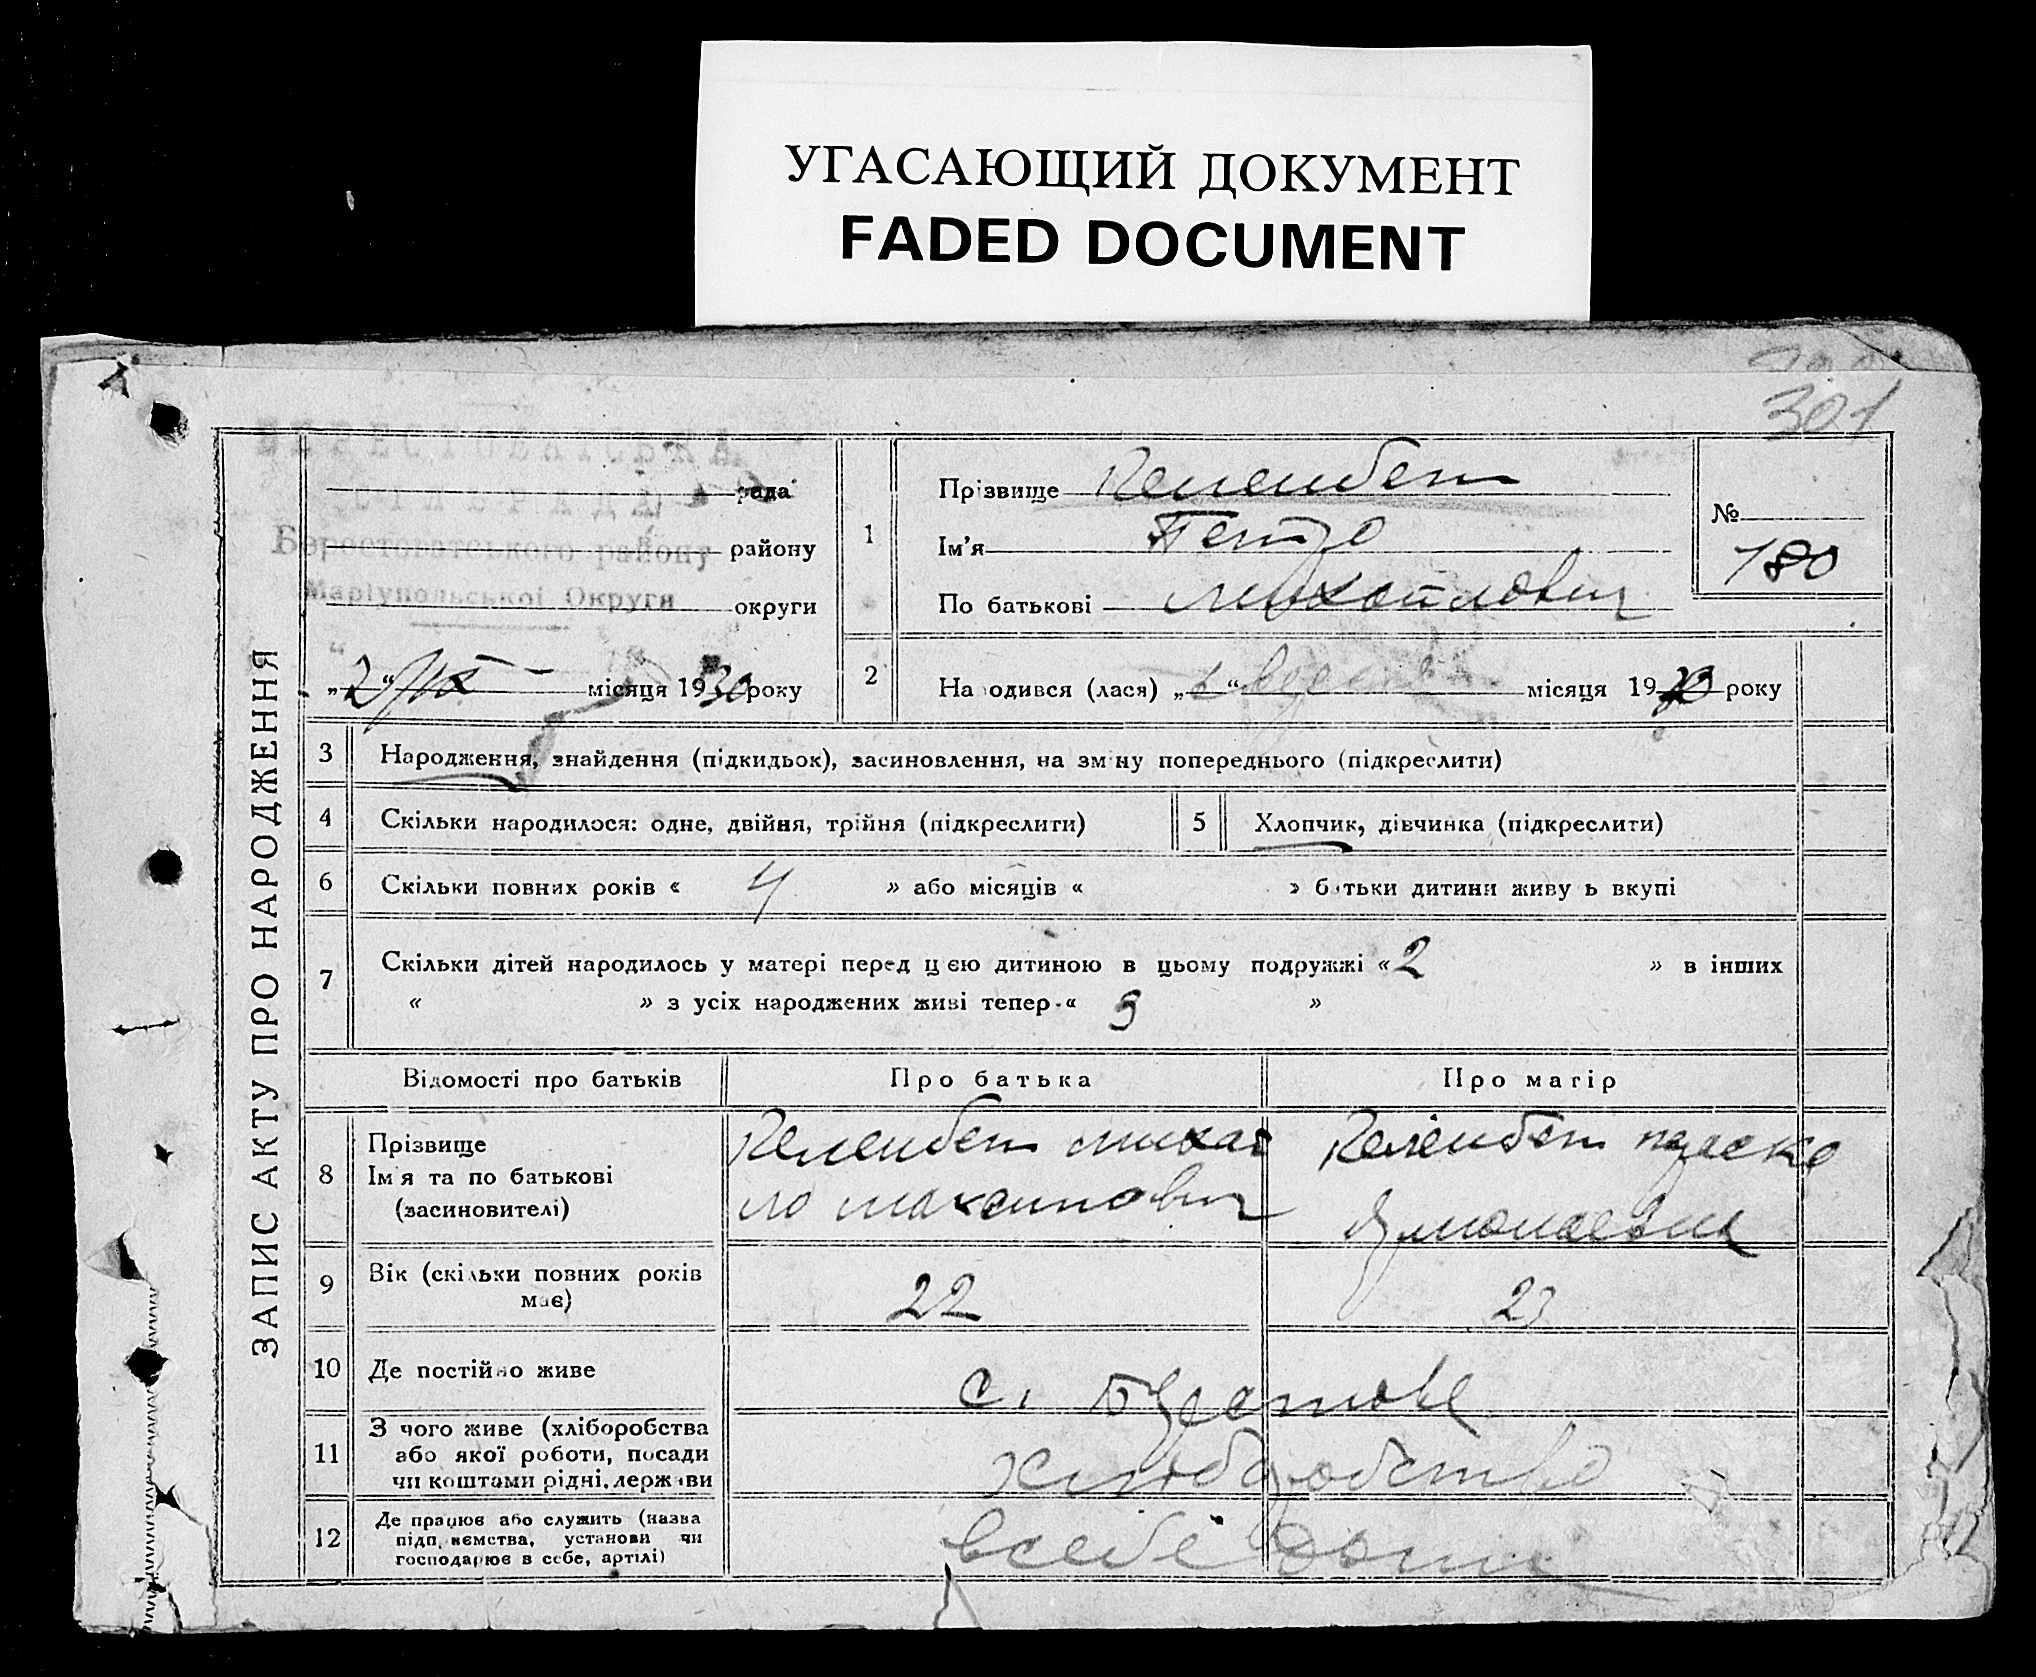 УГАСАЮЩИЙ ДОКУМЕНТ
FADED DOCUMENT
301
ЗАПИС АКТУ ПРО НАРОДЖЕННЯ
рада
Берестоватського району району
Маріупольської Округи округи
„2“ місяця 1930 року
1
Прізвище Келембет
Ім'я Петро
По батькові Михайлович
№
180
2
На одився (лася) „ “ місяця 19 року
3 Народження, знайдення (підкидьок), засиновлення, на зміну попереднього (підкреслити)
4 Скільки народилося: одне, двійня, трійня (підкреслити) 5 Хлопчик, дівчинка (підкреслити)
6 Скільки повних років « 4 » або місяців « » батьки дитини живу ь вкупі
7 Скільки дітей народилось у матері перед цією дитиною в цьому подружжі « 2 » в інших
« » з усіх народжених живі тепер « 3 »
Відомості про батьків Про батька Про матір
8 Прізвище
Ім'я та по батькові
(засиновителі)
Келембет Михай
ло Максимович
Келембет
9 Вік (скільки повних років
має)
22 23
10 Де постійно живе с.
11 З чого живе (хліборобства
або якої роботи, посади
чи коштами рідні, держави
хліборобство
12 Де працює або служить (назва
підприємства, установи чи
господарює в себе, артілі)
в себе дома